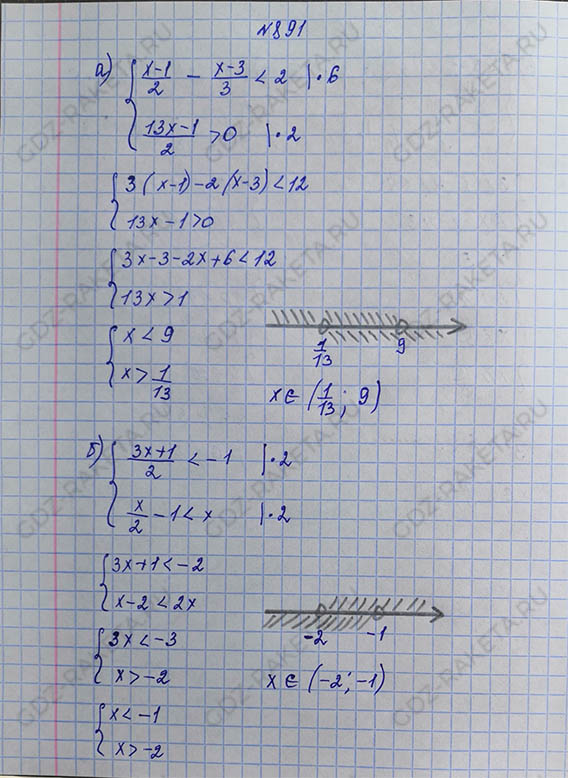 №891
а) { (x-1)/2 - (x-3)/3 < 2 | · 6
(13x-1)/2 > 0 | · 2
{ 3(x-1)-2(x-3)<12
13x-1>0
{ 3x-3-2x+6<12
13x>1
{ x<9
x> 1/13
1/13 9
x∈(1/13; 9)
б) { (3x+1)/2 < -1 | · 2
x/2 - 1 < x | · 2
{ 3x+1<-2
x-2<2x
{ 3x<-3
x>-2
-2 -1
x∈(-2; -1)
{ x<-1
x>-2
GDZ-RAKETA.RU